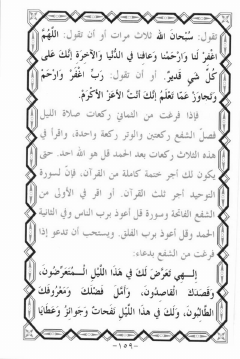 تقول: سُبْحَانَ الله ثلاث مرات أو أن تقول: اللَّهُمَّ
اغْفِرْ لَنا وَارْحَمْنا وَعافِنا في الدُّنْيا وَالآخِرَةِ إنَّكَ عَلى
كُلِّ شَيءٍ قَدِيرٌ. أو أن تقول: رَبِّ اغْفِرْ وَارْحَمْ
وَتَجاوَزْ عَمّا تَعْلَمُ إنَّكَ أَنْتَ الأعَزُّ الأكْرَمُ.
فإذا فرغت من الثماني ركعات صلاة الليل
فَصَلِّ الشفع ركعتين والوتر ركعة واحدة، واقرأ في
هذه الثلاث ركعات بعد الحمد قل هو الله احد. حتى
يكون لك أجر ختمة كاملة من القرآن، فإنَّ لسورة
التوحيد أجر ثلث القرآن. أو اقر في الأولى من
الشفع الفاتحة وسورة قل أعوذ برب الناس وفي الثانية
الحمد وقل أعوذ برب الفلق. ويستحب أن تدعو إذا
فرغت من الشفع بدعاء:
إِلـهي تَعَرَّضَ لَكَ فِي هَذَا اللَّيْلِ الْمُتَعَرِّضُونَ،
وَقَصَدَكَ الْقَاصِدُونَ، وَأَمَّلَ فَضْلَكَ وَمَعْرُوفَكَ
الطَّالِبُونَ، وَلَكَ فِي هذا اللَّيْلِ نَفَحَاتٌ وَجَوائِزُ وَعَطَايَا
-١٥٩-